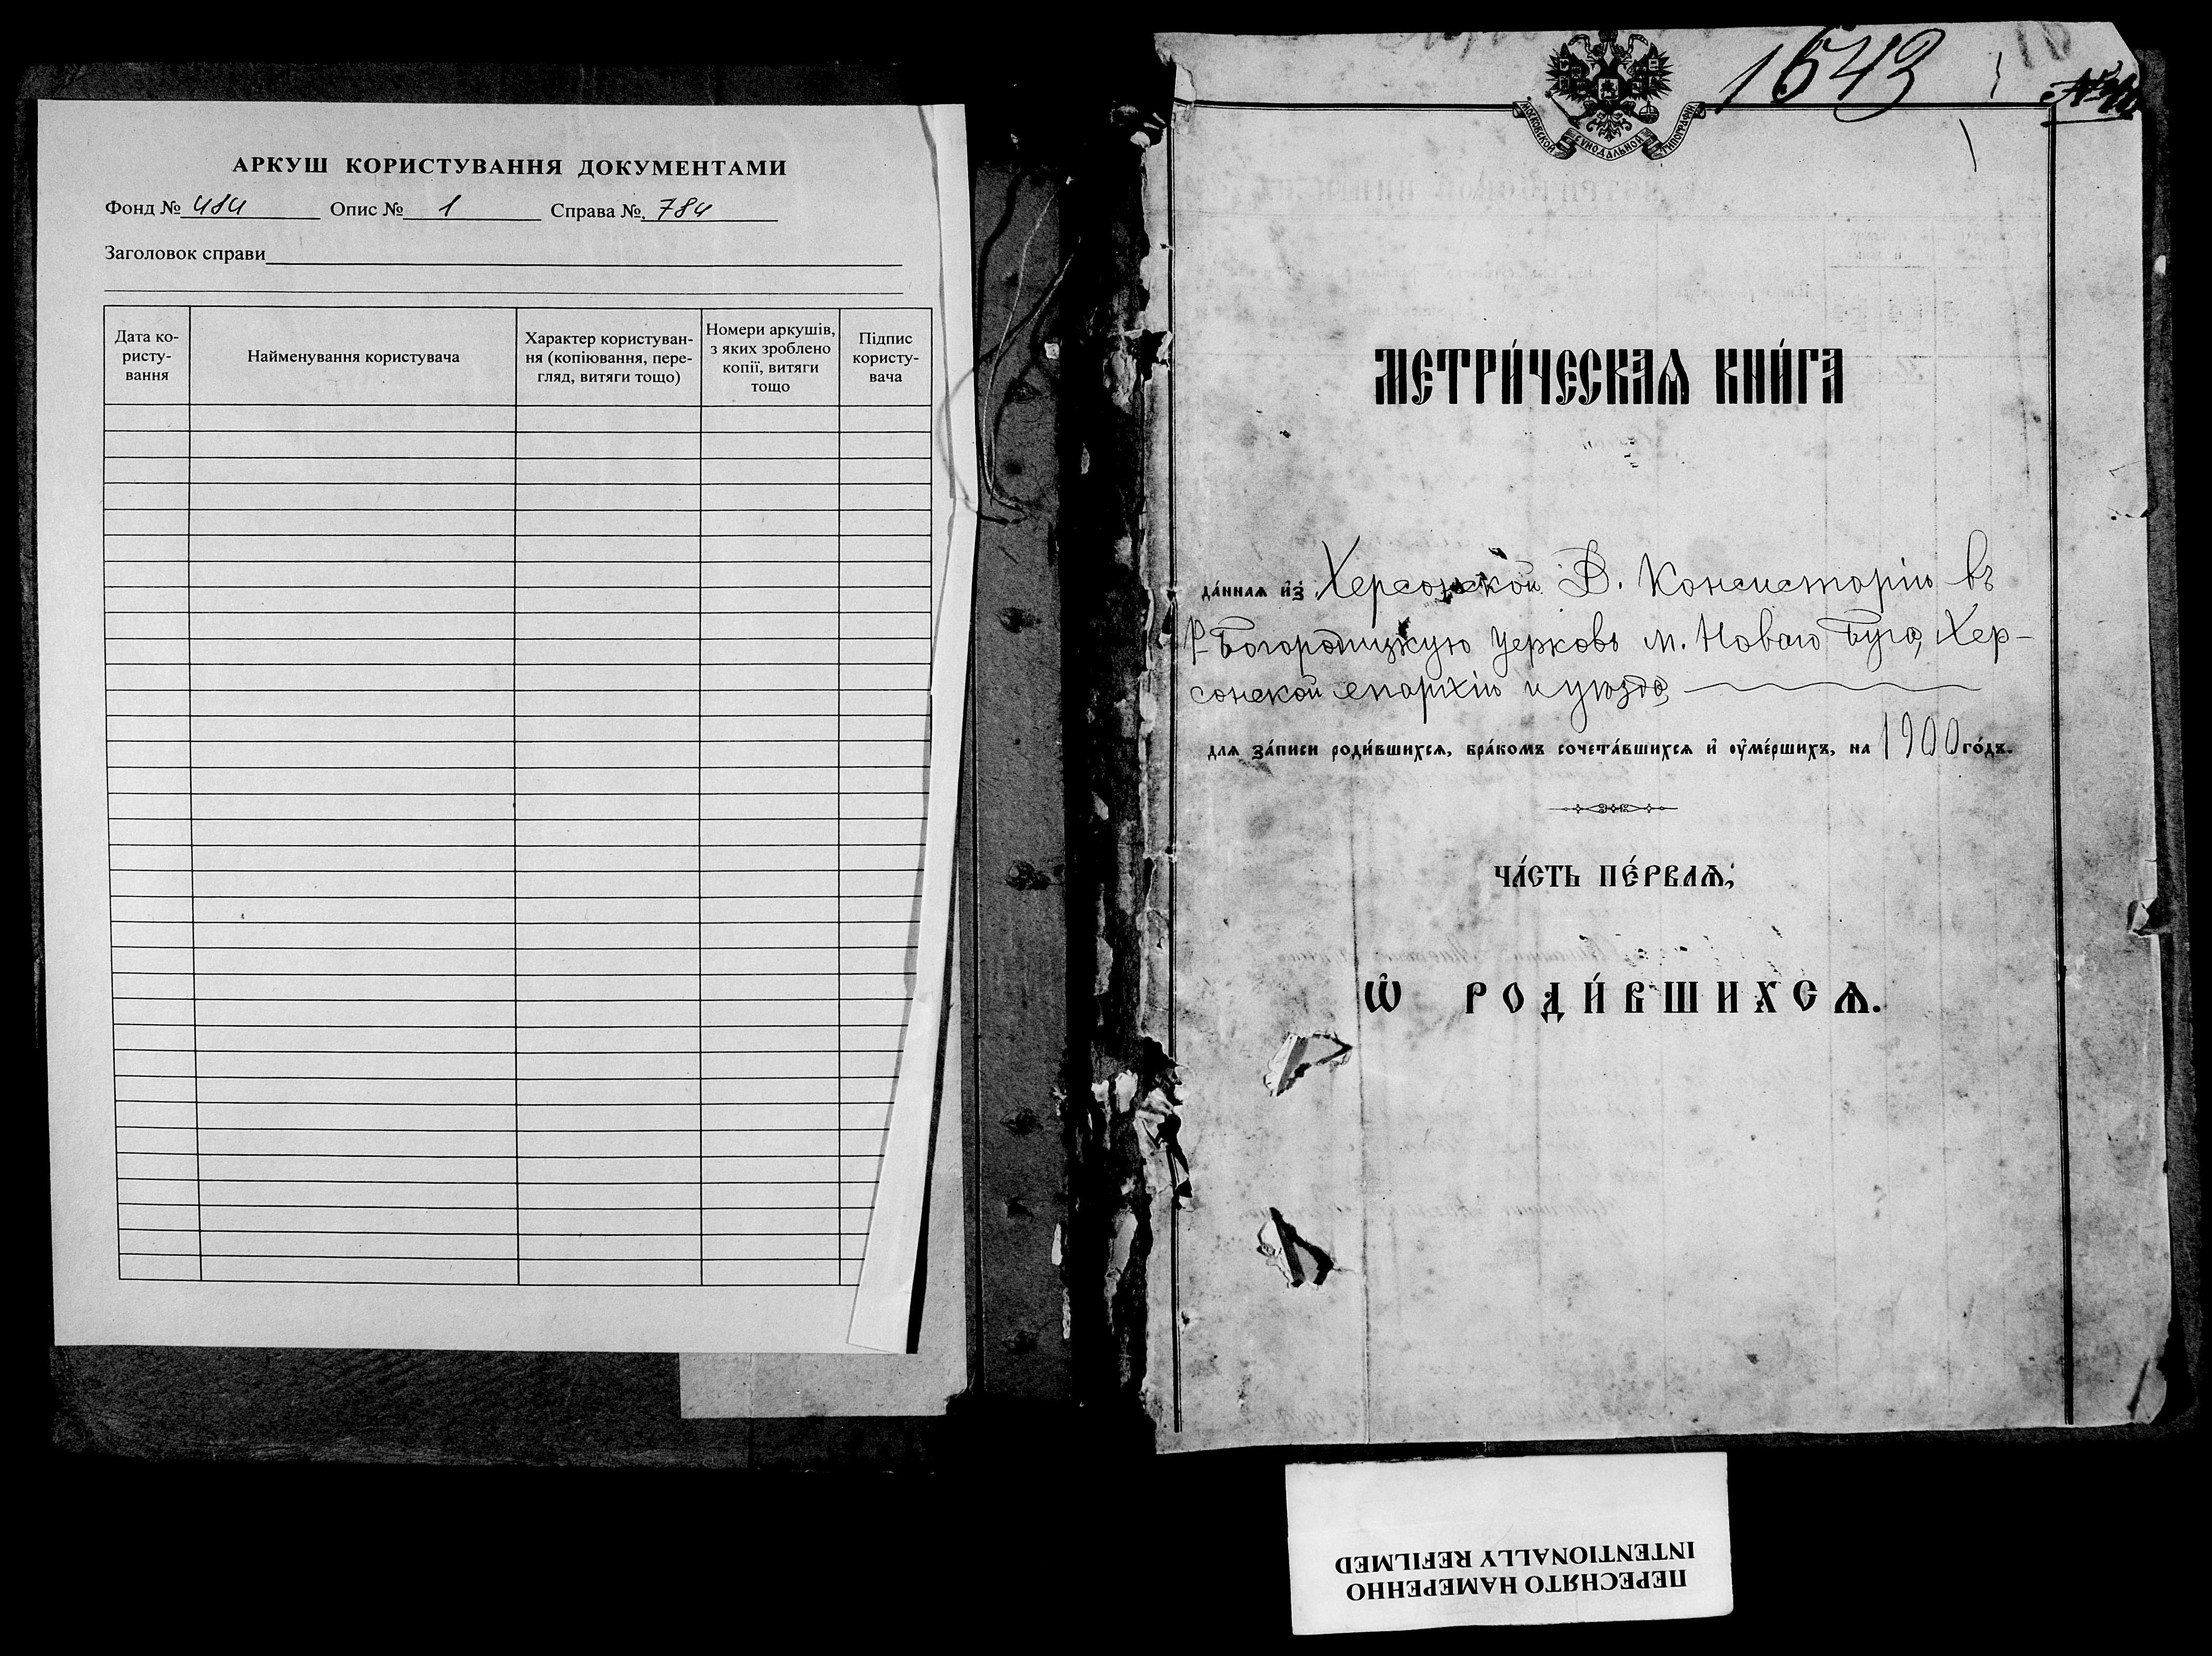 АРКУШ КОРИСТУВАННЯ ДОКУМЕНТАМИ
Фонд № 484 Опис № 1 Справа № 784
Заголовок справи
Дата ко-
ристу-
вання
Найменування користувача
Характер користуван-
ня (копіювання, пере-
гляд, витяги тощо)
Номери аркушів,
з яких зроблено
копії, витяги
тощо
Підпис
користу-
вача
1643
МОСКОВСКОЙ СѴНОДАЛЬНОЙ ТИПОГРАФІИ
МЕТРИ́ЧЕСКАѦ КНИ́ГА
да́ннаѧ и҆з̾ Херсонской Д. Консисторіи въ
Р-Богородицкую церковь м. Новаго Буга, Хер-
сонской епархіи и уѣзда,
для за́писи роди́вшихсѧ, бра́комъ сочета́вшихсѧ и҆ оу҆ме́ршихъ, на 1900 го́дъ.
ЧА́СТЬ ПЕ́РВАѦ,
Ѽ РОДИ́ВШИХСѦ.
ПЕРЕСНЯТО НАМЕРЕННО
INTENTIONALLY REFILMED